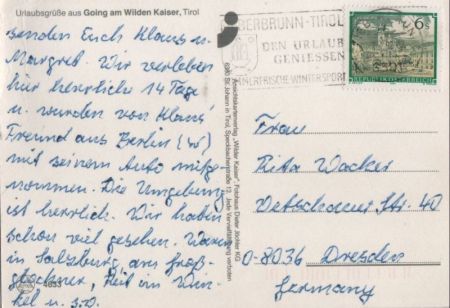 Urlaubsgrüße aus Going am Wilden Kaiser, Tirol
senden Euch Klaus u.
Margret. Wir verleben
hier herrliche 14 Tage
u. wurden von Klaus'
Freund aus Berlin (W)
mit seinem Auto mitge-
nommen. Die Umgebung
ist herrlich. Wir haben
schon viel gesehen. Waren
in Salzburg, am Groß-
glockner, Reit im Win-
kel u.s.w.
4633
Ansichtskartenverlag „Wilder Kaiser“, Fotohaus Dieter Jöchler KG
6380 St. Johann in Tirol, Speckbacherstraße 12. Jede Vervielfältigung verboten
BERBRUNN-TIROL
DEN URLAUB
GENIESSEN
WINTERSPORT
S 6
REPUBLIK ÖSTERREICH
Frau
Rita Wacker
Vetschauer Str. 40
O-8036 Dresden
Germany